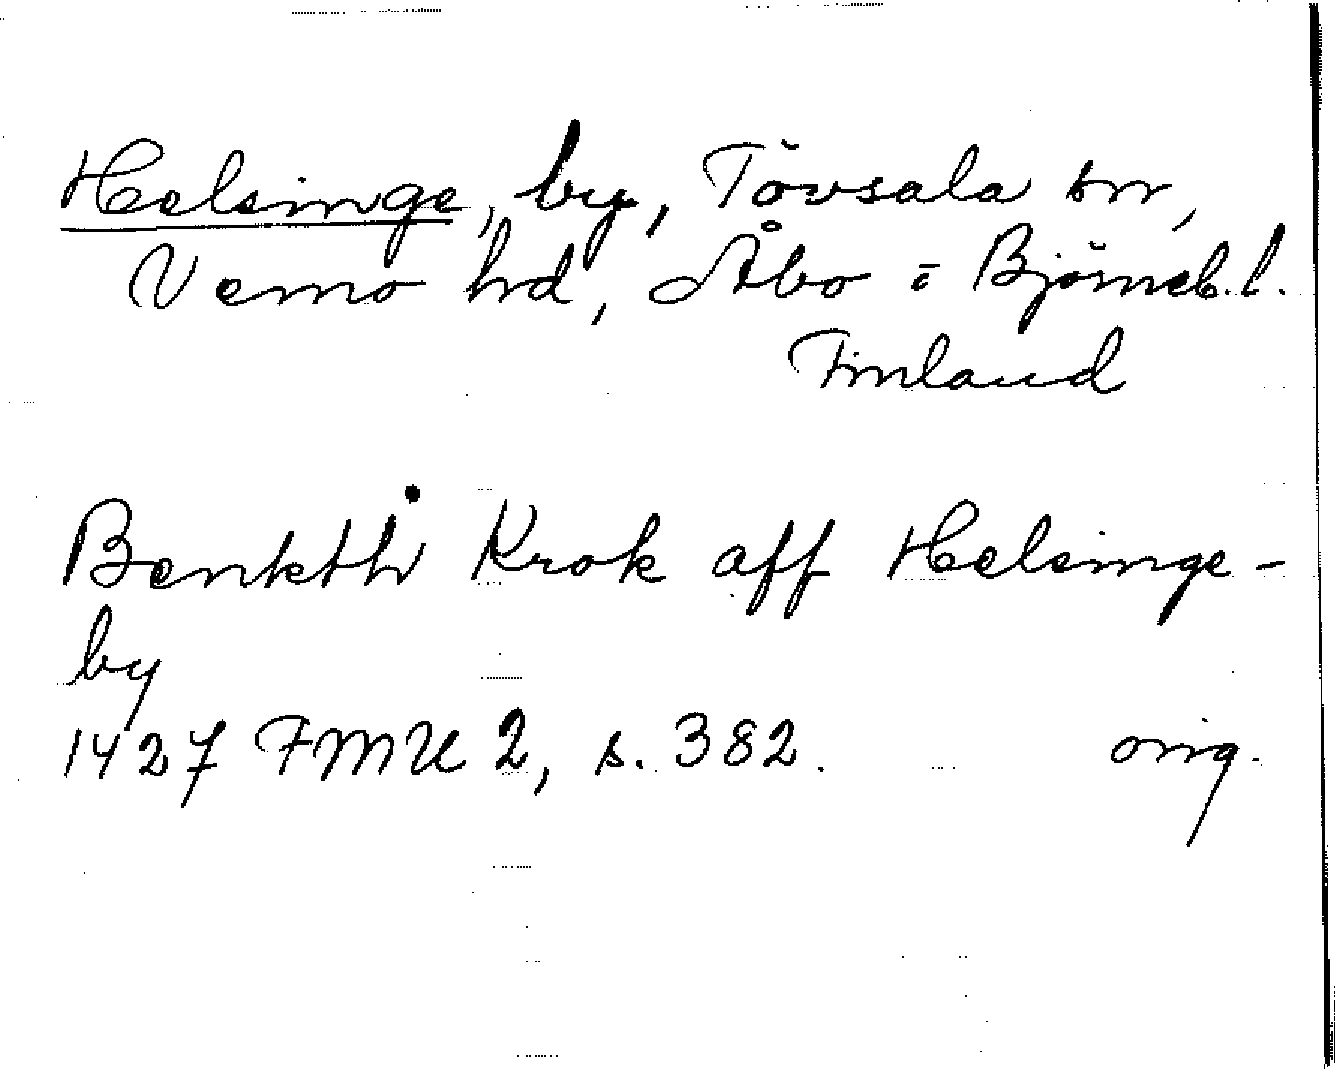 Helsinge, by, Tövsala sn,
Vemo hd, Åbo = Björneb. l.
Finland
Benkth Krok aff Helsinge-
by
1427 FMU 2, s. 382. orig.